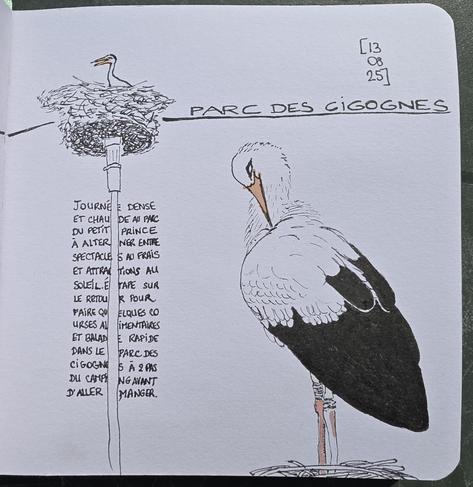 [13
08
25]
PARC DES CIGOGNES
JOURNÉE DENSE
ET CHAUDE AU PARC
DU PETIT PRINCE
À ALTERNER ENTRE
SPECTACLES AU FRAIS
ET ATTRACTIONS AU
SOLEIL. ÉTAPE SUR
LE RETOUR POUR
FAIRE QUELQUES CO
URSES ALIMENTAIRES
ET BALADE RAPIDE
DANS LE PARC DES
CIGOGNES À 2 PAS
DU CAMPING AVANT
D'ALLER MANGER.